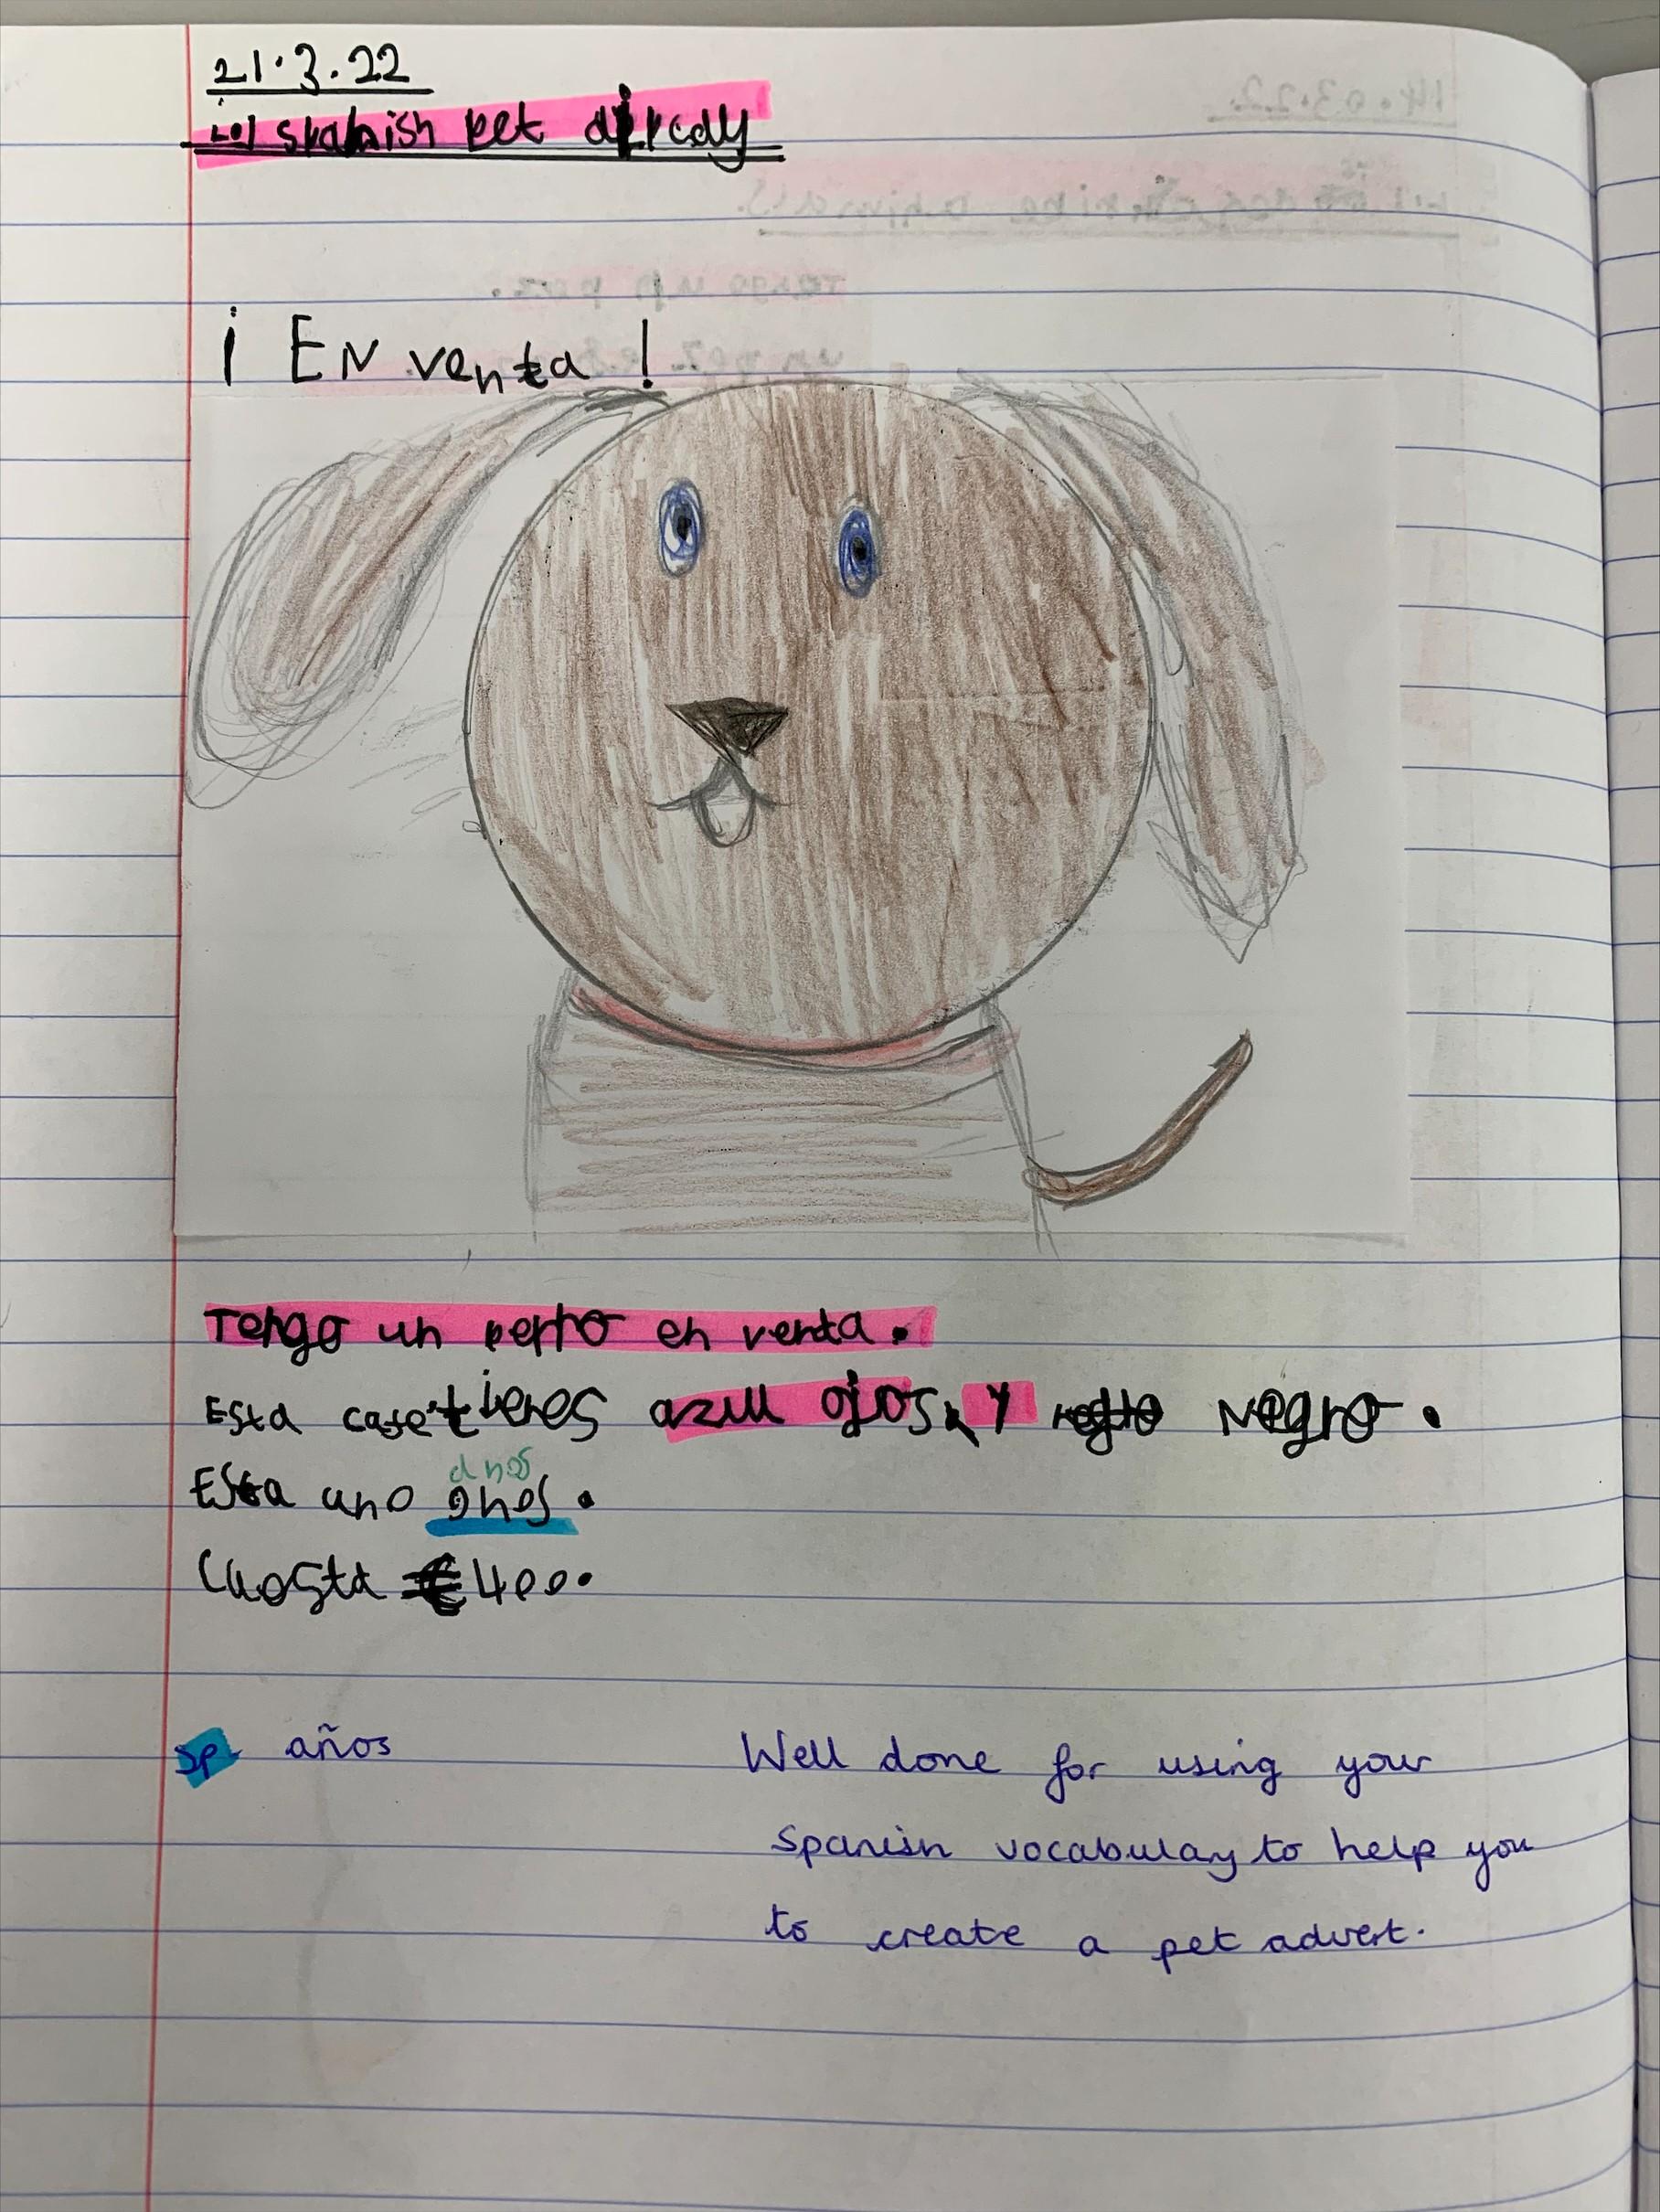 21.3.22
Spanish pet
¡ EN venta !
Tengo un perro en venta.
Esta tienes azul ojos, y Negro.
Esta uno onos.
anos
Cuosta €400.
sp años
Well done for using your
Spanish vocabulary to help you
to create a pet advert.